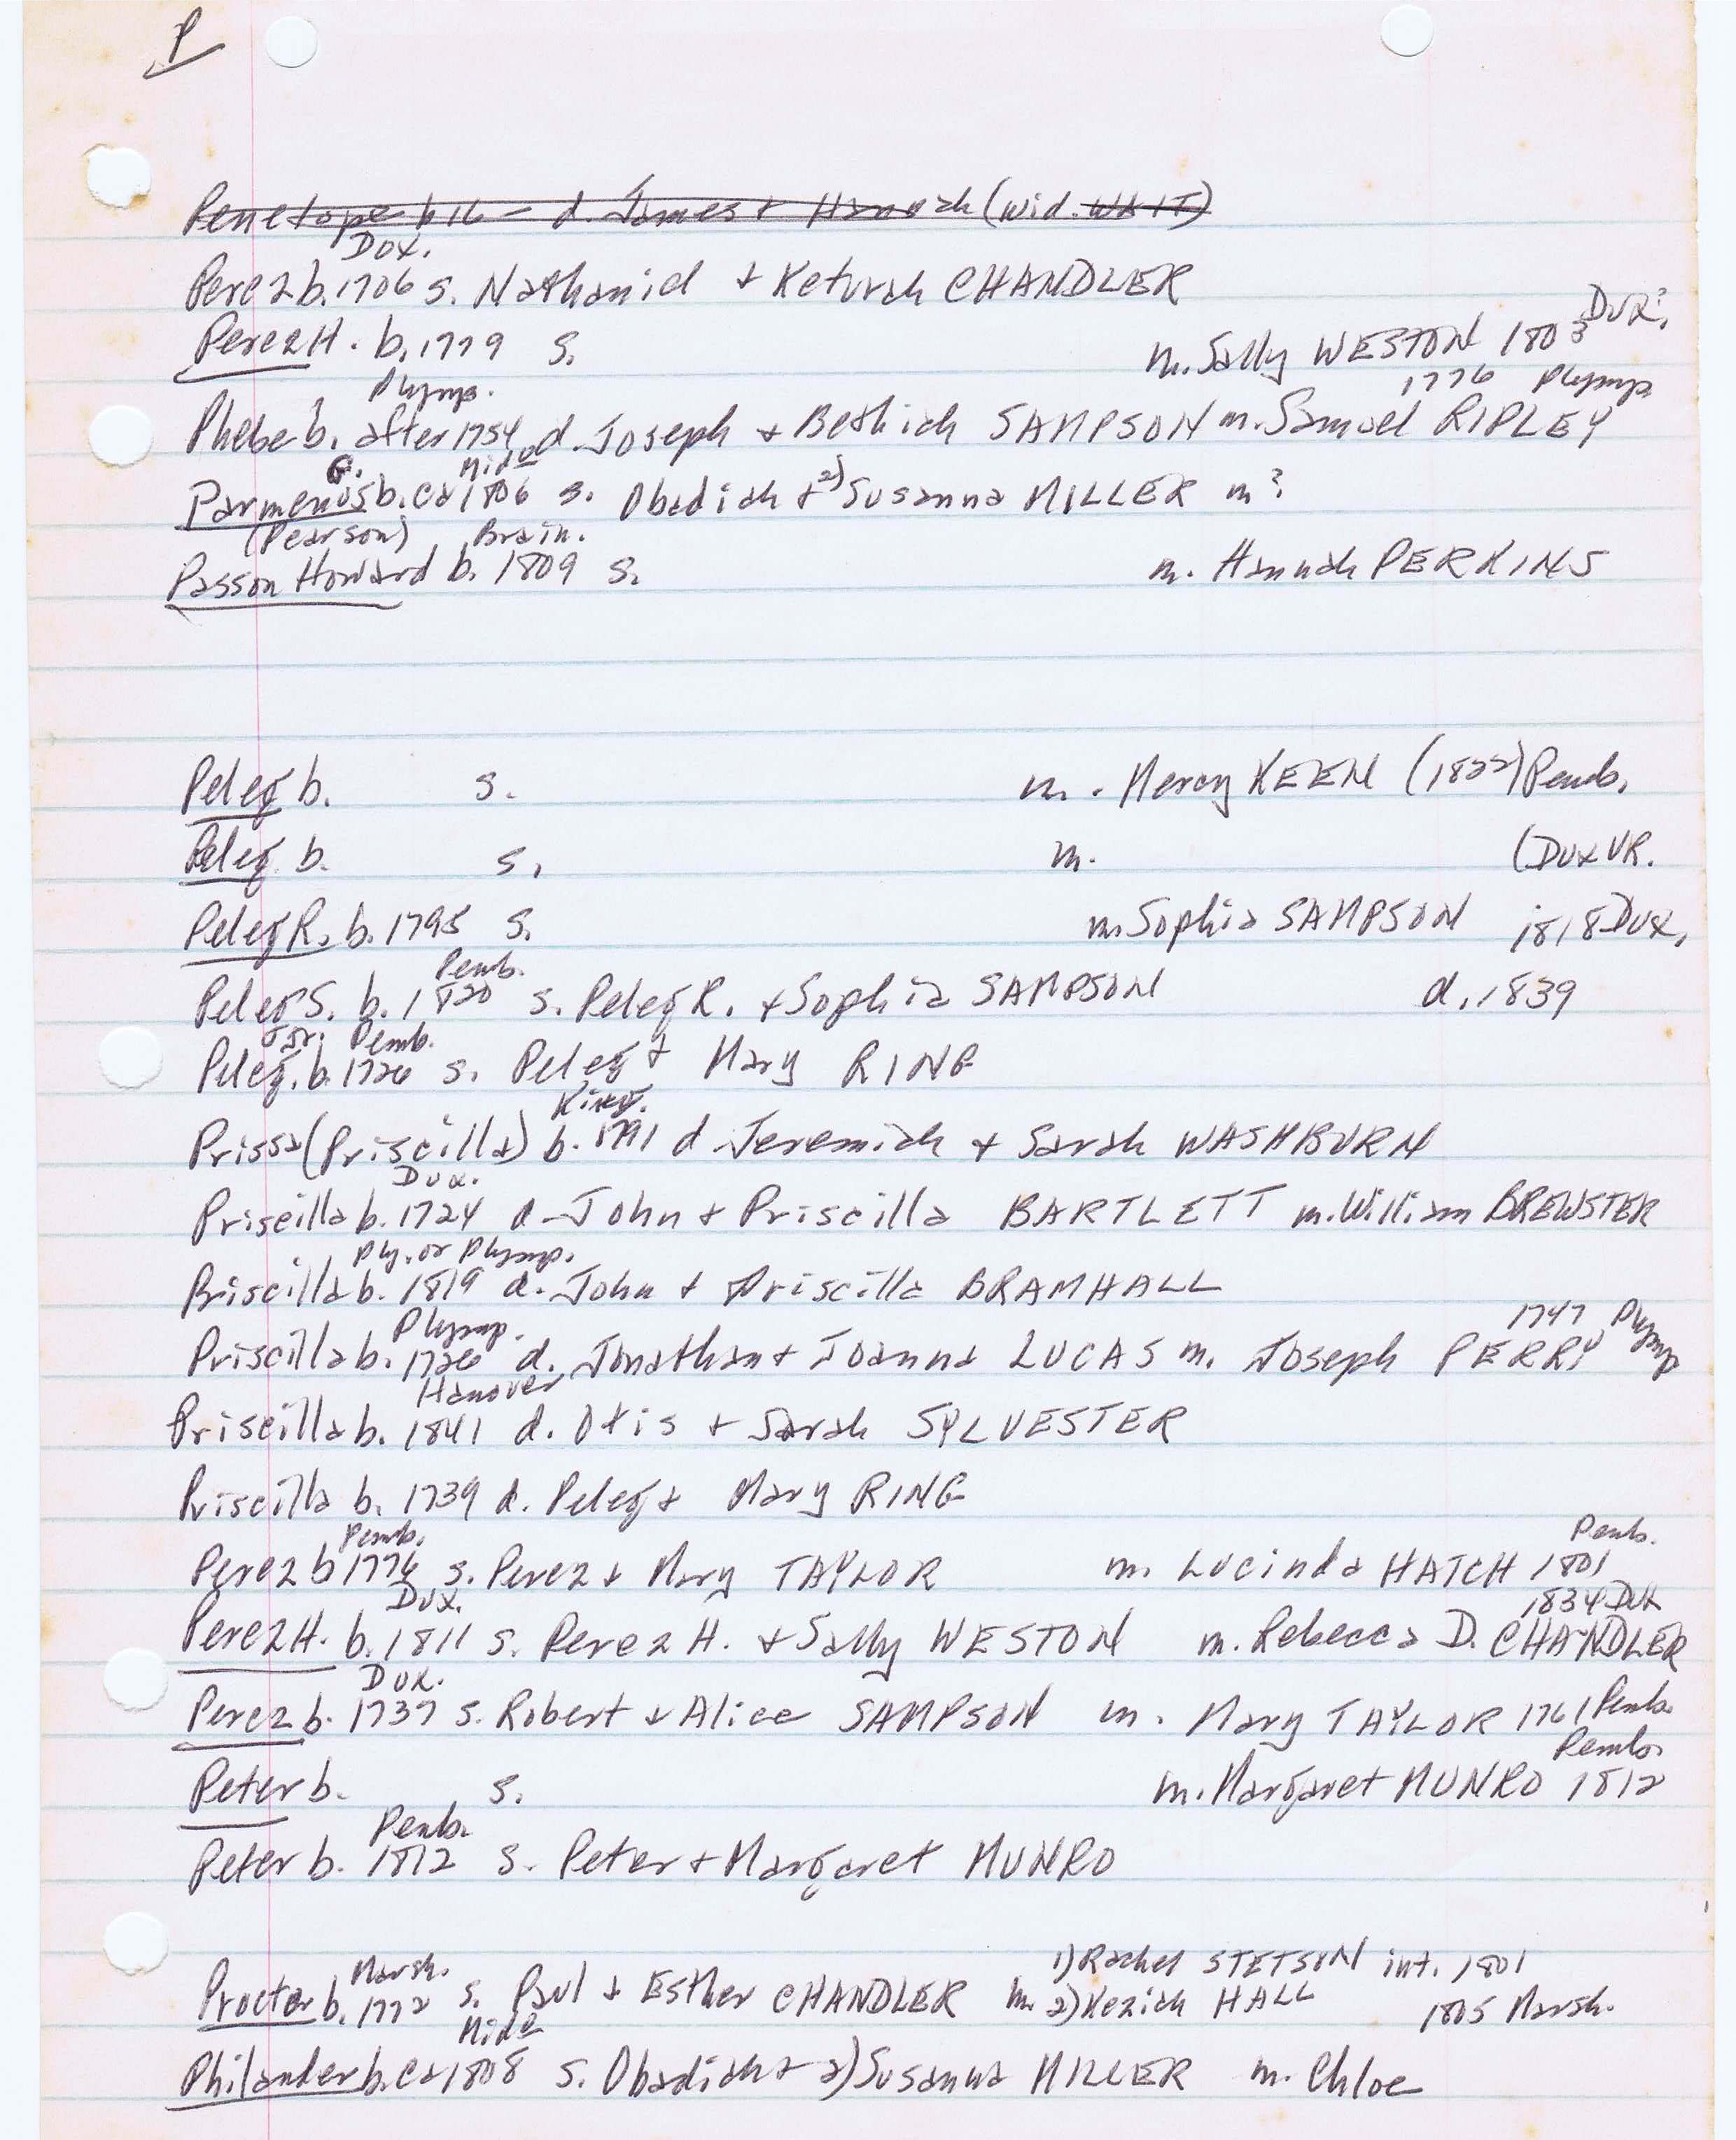 P
Penelope b 16 – d. James + Hannah (wid. WAIT)
Dux.
Perez b. 1706 s. Nathaniel + Keturah CHANDLER
Dux.
Perez H. b. 1779 s. m. Sally WESTON 1803
Plymp. 1776 Plymp.
Phebe b. after 1754 d. Joseph + Bethiah SAMPSON m. Samuel RIPLEY
G. Midd
Parmenus b. ca 1806 s. Obadiah + 2) Susanna MILLER m?
(Pearson) Brain.
Passon Howard b. 1809 s. m. Hannah PERKINS
Peleg b. s. m. Mercy KEEN (1822) Pemb.
Peleg b. s. m. (Dux VR.
Peleg R. b. 1795 s. m. Sophia SAMPSON 1818 Dux.
Pemb.
Peleg S. b. 1820 s. Peleg R. + Sophia SAMPSON d. 1839
Jr. Pemb.
Peleg. b. 1726 s. Peleg + Mary RING
King.
Prissa (Priscilla) b. 1791 d Jeremiah + Sarah WASHBURN
Dux.
Priscilla b. 1724 d. John + Priscilla BARTLETT m. William BREWSTER
Ply. or Plymp.
Priscilla b. 1819 d. John + Priscilla BRAMHALL
Plymp. 1747 Plymp
Priscilla b. 1726 d. Jonathan + Joanna LUCAS m. Joseph PERRY
Hanover
Priscilla b. 1841 d. Otis + Sarah SYLVESTER
Priscilla b. 1739 d. Peleg + Mary RING
Pemb. Pemb.
Perez b 1776 s. Perez + Mary TAYLOR m. Lucinda HATCH 1801
Dux. 1834 Dux
Perez H. b. 1811 s. Perez H. + Sally WESTON m. Rebecca D. CHANDLER
Dux.
Perez b. 1737 s. Robert + Alice SAMPSON m. Mary TAYLOR 1761 Pemb.
Pemb.
Peter b. s. m. Margaret MUNRO 1812
Pemb.
Peter b. 1812 s. Peter + Margaret MUNRO
Marsh. 1) Rachel STETSON int. 1801
Procter b. 1772 s. Paul + Esther CHANDLER m. 2) Keziah HALL 1805 Marsh.
Midd
Philander b. ca 1808 s. Obadiah + 2) Susanna MILLER m. Chloe